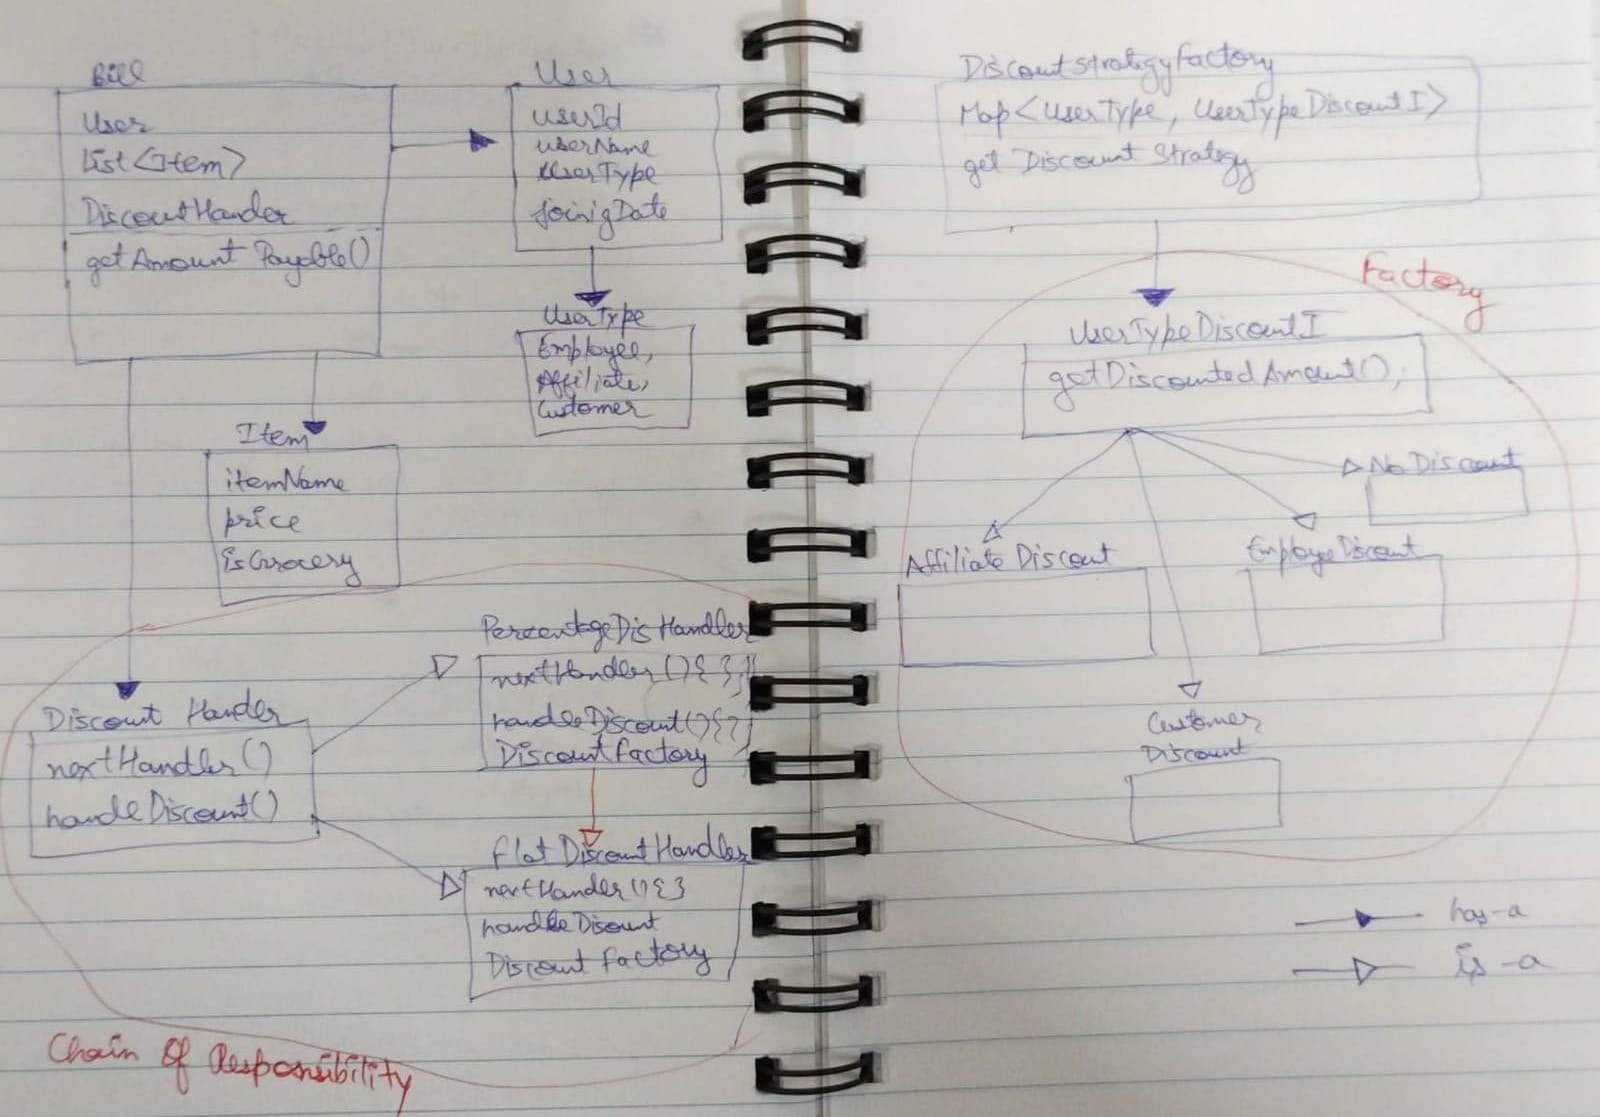 Bill
User
List<Item>
DiscountHander
getAmount Payable()
User
userId
userName
UserType
JoinigDate
UserType
Employee,
Affiliate,
Customer
Item
itemName
price
isGrocery
Discount Hander
nextHandler()
handleDiscount()
PercentageDisHandler
nextHandler(){};
handleDiscount(){}
Discountfactory
flat DiscountHandler
nextHander(){}
handleDisount
Discount factory
Chain Of Responsibility
Discountstrategyfactory
Map<UserType, UserTypeDiscountI>
get Discount Strategy
Factory
UserTypeDiscountI
getDiscountedAmount();
No Discount
Affiliate Discout
EmployeDiscout
Customer
Discount
has-a
is-a